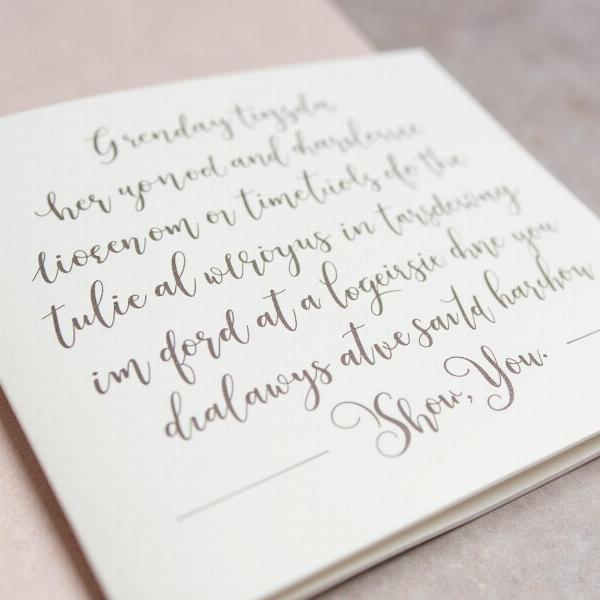 Grenday tingsda
her yonod and
liorenom or timetiols do the
tulie al wlroyus in tarsdewing
im ford at a logeirsie dne you
dialawys atve sarld harehow
Show, You.